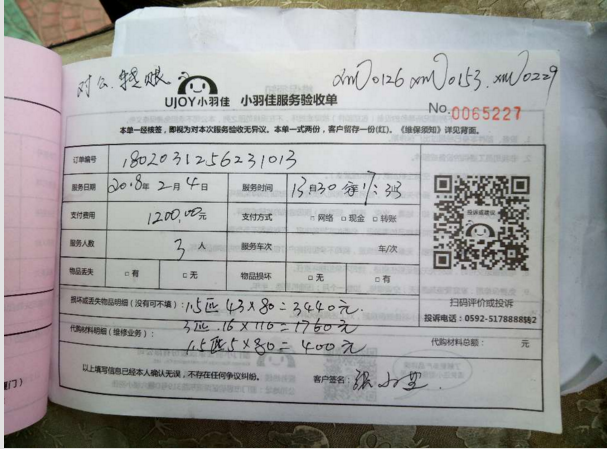 对公.转账 xm0126 xm0153.xm0229
UJOY小羽佳 小羽佳服务验收单
No.0065227
本单一经核签，即视为对本次服务验收无异议。本单一式两份，客户留存一份(红)。《维保须知》详见背面。
订单编号 1802031256231013
服务日期 2018年2月4日 服务时间 13时30分 17:33
支付费用 1200.00元 支付方式 □网络 □现金 □转账
服务人数 3人 服务车次 车/次
物品丢失 □有 □无 物品损坏 □无 □有
投诉或建议
扫码评价或投诉
投诉电话：0592-5178888转2
损坏或丢失物品明细（没有可不填）：1.5匹 43×80=3440元.
3匹.16×110=1760元
代购材料明细(维修业务)：
1.5匹5×80=400元
代购材料总额： 元
以上填写信息已经本人确认无误，不存在任何争议纠纷。 客户签名：张
门）